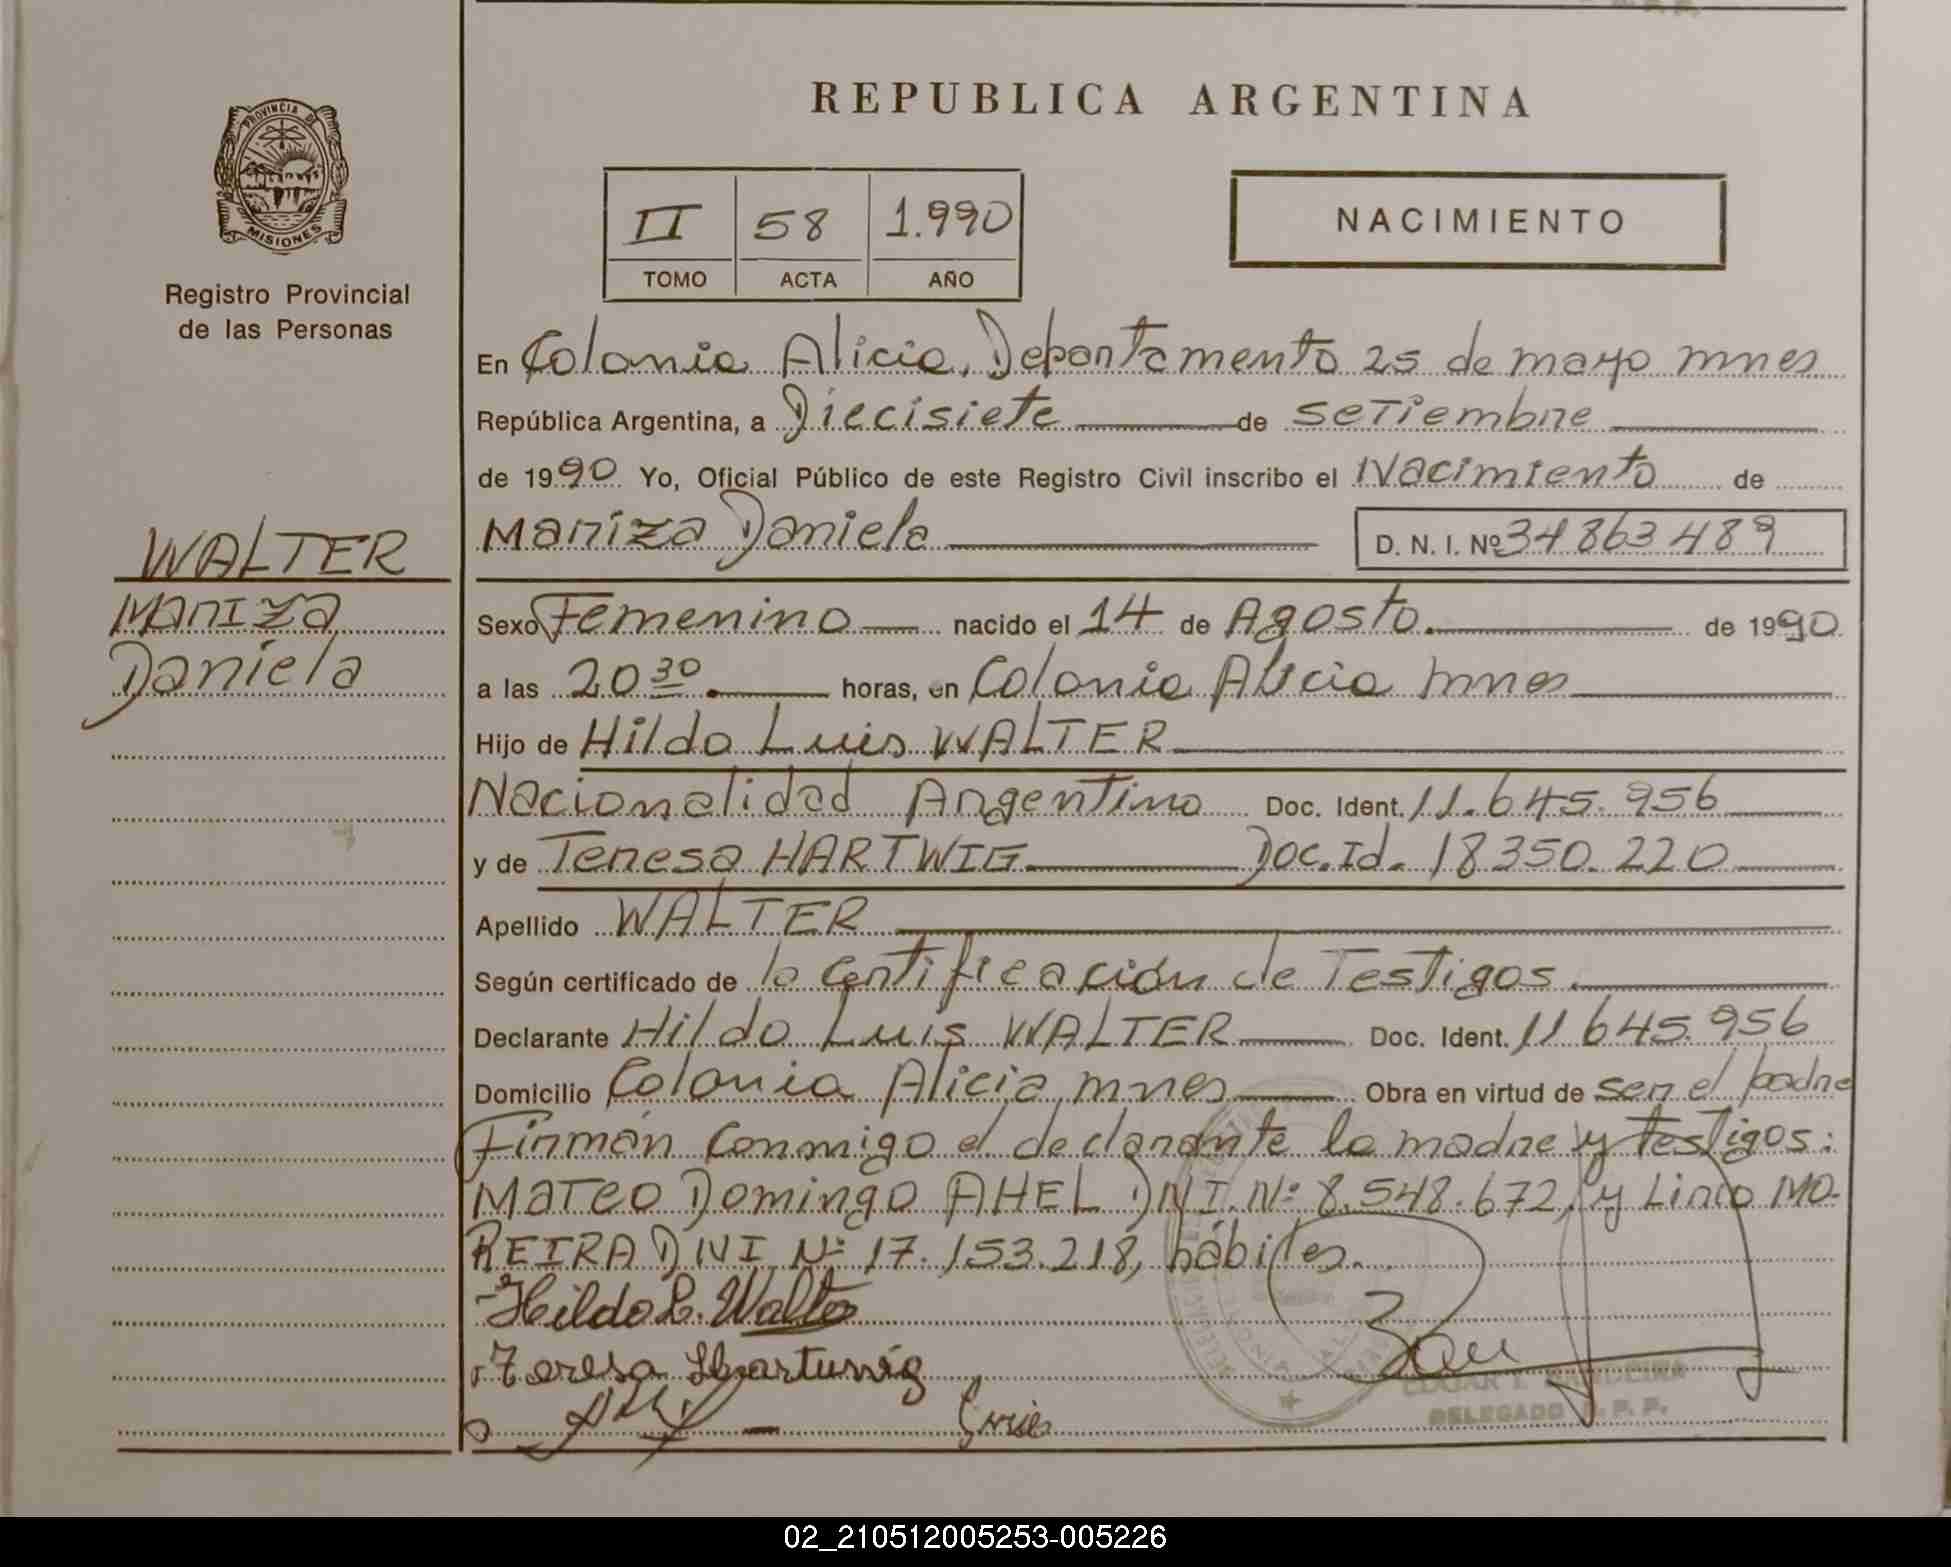 REPUBLICA ARGENTINA
PROVINCIA DE
MISIONES
Registro Provincial
de las Personas
II 58 1.990
TOMO ACTA AÑO
NACIMIENTO
En Colonia Alicia, Departamento 25 de mayo mnes
República Argentina, a Diecisiete de SeTiembre
de 1990 Yo, Oficial Público de este Registro Civil inscribo el Nacimiento de
Mariza Daniela D. N. I. Nº 34 863 489
WALTER
Mariza
Daniela
Sexo Femenino nacido el 14 de Agosto. de 1990
a las 20 30 horas, en Colonia Alicia mnes
Hijo de Hildo Luis WALTER
Nacionalidad Argentino Doc. Ident. 11.645.956
y de Teresa HARTWIG Doc. Id. 18350.220
Apellido WALTER
Según certificado de la Certificación de Testigos.
Declarante Hildo Luis WALTER Doc. Ident. 11 645.956
Domicilio Colonia Alicia mnes Obra en virtud de ser el padre
Firman Conmigo el declarante la madre y testigos:
MATEO Domingo AHEL DNI. Nº 8.548.672, y Lino MO-
REIRA DNI Nº 17.153.218, hábiles.
Hildo L. Walter
Teresa Hartwig
DELEGADO R. P. P.
02_210512005253-005226